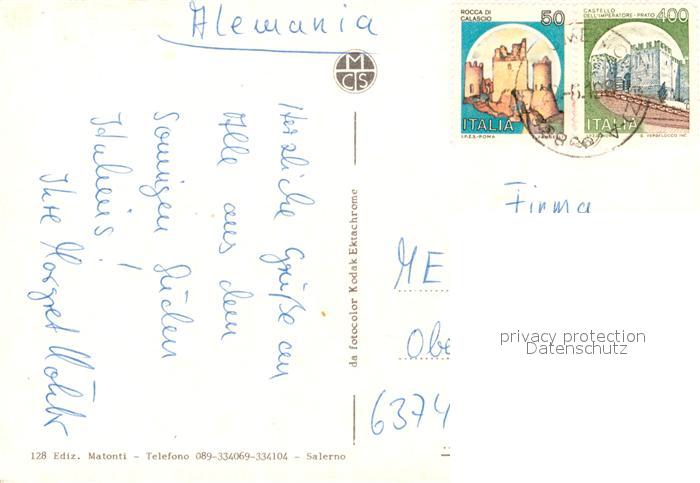 Alemania
ROCCA DI
CALASCIO
50
ITALIA
I.P.Z.S.-ROMA
CASTELLO
DELL'IMPERATORE-PRATO
400
ITALIA
MCS
Herzliche Grüße an
Alle aus dem
Sonnigen Süden
Italiens!
Ihre Margret
da fotocolor Kodak Ektachrome
Firma
ME
Obe
6374
privacy protection
Datenschutz
128 Ediz. Matonti - Telefono 089-334069-334104 - Salerno